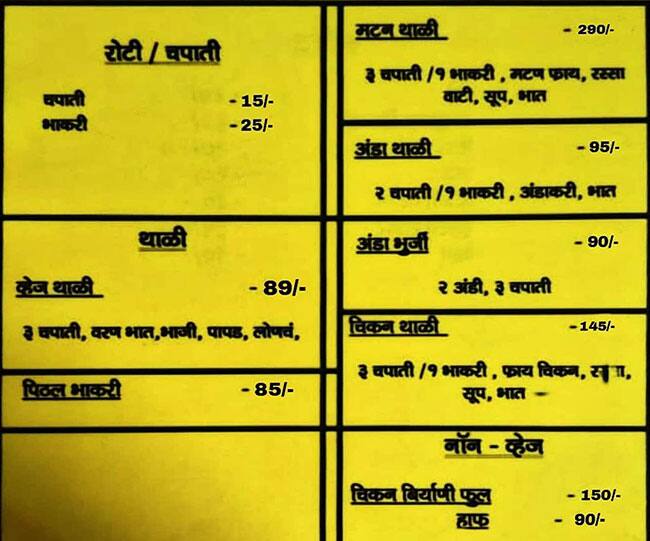 रोटी / चपाती
चपाती - 15/-
भाकरी - 25/-
थाळी
व्हेज थाळी - 89/-
३ चपाती, वरण भात,भाजी, पापड, लोणचं,
पिठल भाकरी - 85/-
मटन थाळी - 290/-
३ चपाती /१ भाकरी , मटण फ्राय, रस्सा
वाटी, सूप, भात
अंडा थाळी - 95/-
२ चपाती /१ भाकरी , अंडाकरी, भात
अंडा भुर्जी - 90/-
२ अंडी, ३ चपाती
चिकन थाळी -145/-
३ चपाती /१ भाकरी , फ्राय चिकन,
सूप, भात
नॉन - व्हेज
चिकन बिर्याणी फुल - 150/-
हाफ - 90/-